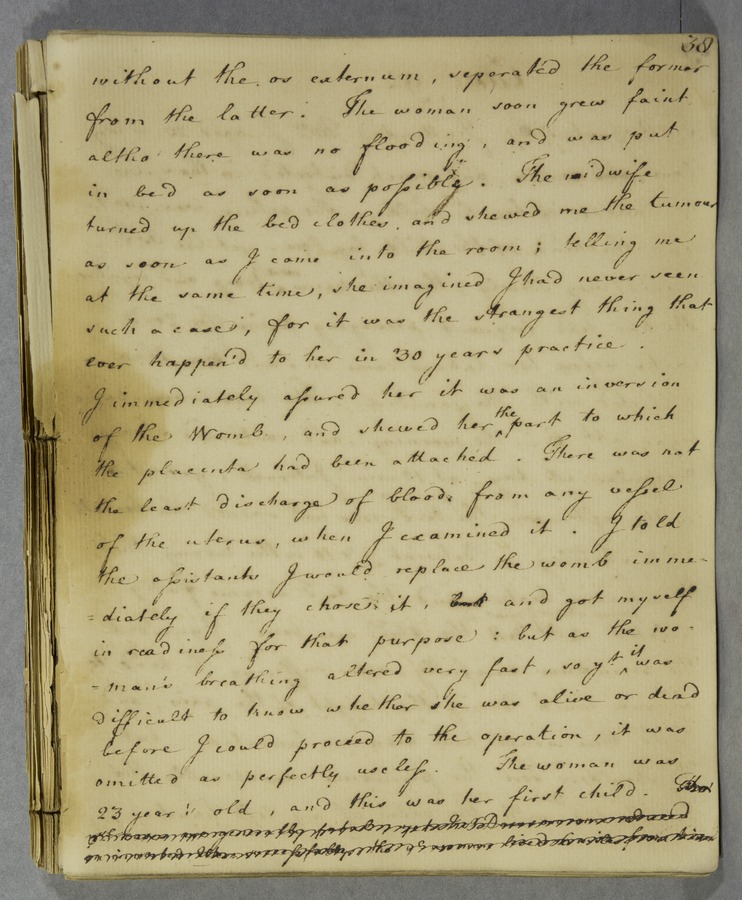 38
without the os externum, seperated the former
from the latter. The woman soon grew faint
altho' there was no flooding, and was put
in bed as soon as possible. The midwife
turned up the bed clothes, and shewed me the tumour
as soon as I came into the room; telling me
at the same time, she imagined I had never seen
such a case, for it was the strangest thing that
ever happen'd to her in 30 years practice.
I immediately assured her it was an inversion
of the Womb, and shewed her the part to which
the placenta had been attached. There was not
the least discharge of blood from any vessel
of the uterus, when I examined it. I told
the assistants I would replace the womb imme-
=diately if they chose it, and got myself
in readiness for that purpose: but as the wo-
=man's breathing altered very fast, so yt. it was
difficult to know whether she was alive or dead
before I could proceed to the operation, it was
omitted as perfectly useless. The woman was
23 years old, and this was her first child.